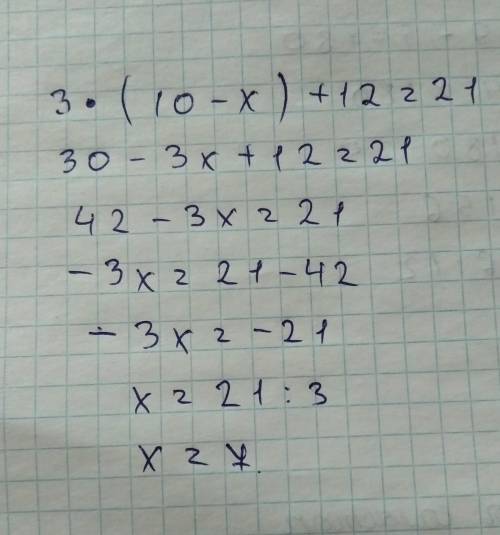 3·(10-x)+12=21
30-3x+12=21
42-3x=21
-3x=21-42
-3x=-21
x=21:3
x=7.